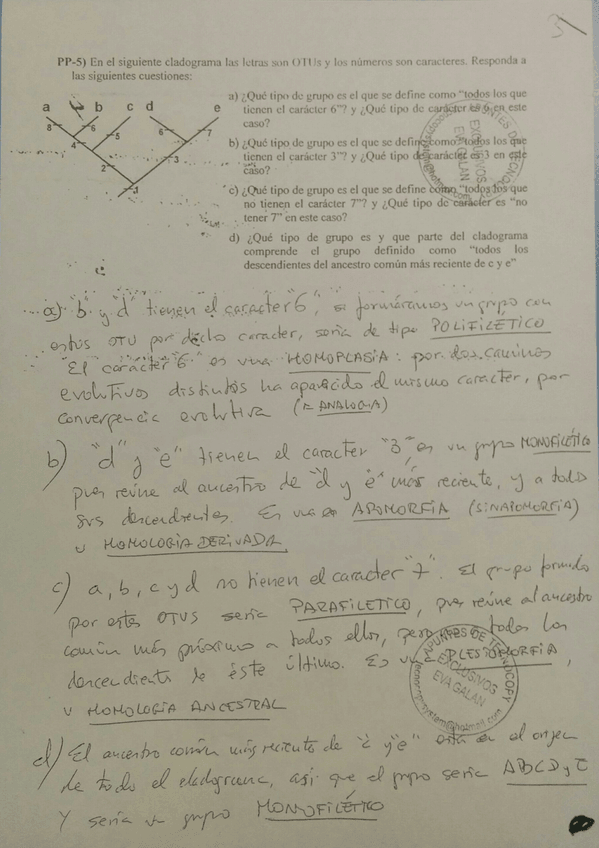 3
PP-5) En el siguiente cladograma las letras son OTUs y los números son caracteres. Responda a
las siguientes cuestiones:
a b c d e
8 6 5 6 7
4 3
2
1
a) ¿Qué tipo de grupo es el que se define como "todos los que
tienen el carácter 6"? y ¿Qué tipo de carácter es 6 en este
caso?
b) ¿Qué tipo de grupo es el que se define como "todos los que
tienen el carácter 3"? y ¿Qué tipo de carácter es 3 en este
caso?
c) ¿Qué tipo de grupo es el que se define como "todos los que
no tienen el carácter 7"? y ¿Qué tipo de carácter es "no
tener 7" en este caso?
d) ¿Qué tipo de grupo es y que parte del cladograma
comprende el grupo definido como "todos los
descendientes del ancestro común más reciente de c y e"
a) "b" y "d" tienen el caracter "6", si formáramos un grupo con
estos OTU por dicho caracter, sería de tipo POLIFILETICO
"El caracter "6" es una HOMOPLASIA: por dos caminos
evolutivos distintos ha aparecido el mismo caracter, por
convergencia evolutiva (= ANALOGIA)
b) "d" y "e" tienen el caracter "3", es un grupo MONOFILÉTICO
pues reúne al ancestro de "d y e" más reciente, y a todos
sus descendientes. Es una APOMORFIA (SINAPOMORFIA)
u HOMOLOGIA DERIVADA
c) a, b, c y d no tienen el caracter "7". El grupo formado
por estos OTUS sería PARAFILETICO, pues reúne al ancestro
común más próximo a todos ellos, pero no todos los
descendientes de éste último. Es una PLESIOMORFIA,
u HOMOLOGIA ANCESTRAL
APUNTES DE TECNOCOPY
EXCLUSIVOS
EVA GALAN
d) El ancestro común más reciente de "c" y "e" está en el origen
de todo el cladograma, así que el grupo sería ABCD y E
y sería un grupo MONOFILÉTICO